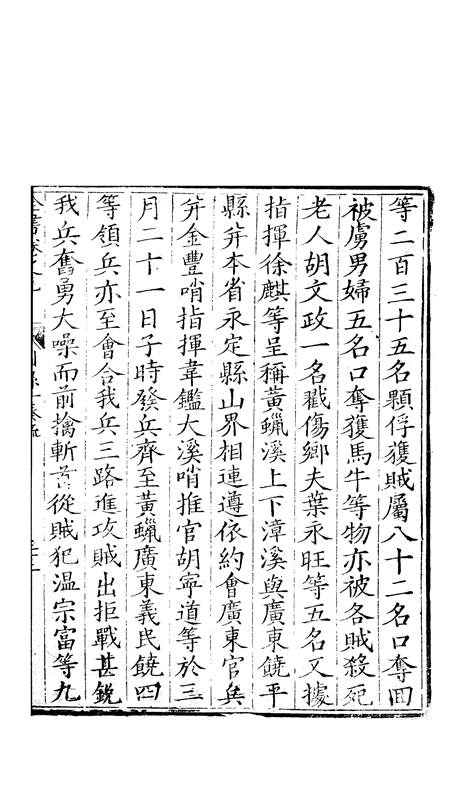 等二百三十五名顆俘獲賊屬八十二名口奪回
被虜男婦五名口奪獲馬牛等物亦被各賊殺死
老人胡文政一名戳傷鄉夫葉永旺等五名又據
指揮徐麒等呈稱黃蠟溪上下漳溪與廣東饒平
縣并本省永定縣山界相連遵依約會廣東官兵
并金豐哨指揮韋鑑大溪哨推官胡寧道等於三
月二十一日子時發兵齊至黃蠟廣東義民饒四
等領兵亦至會合我兵三路進攻賊出拒戰甚銳
我兵奮勇大噪而前擒斬首從賊犯温宗富等九